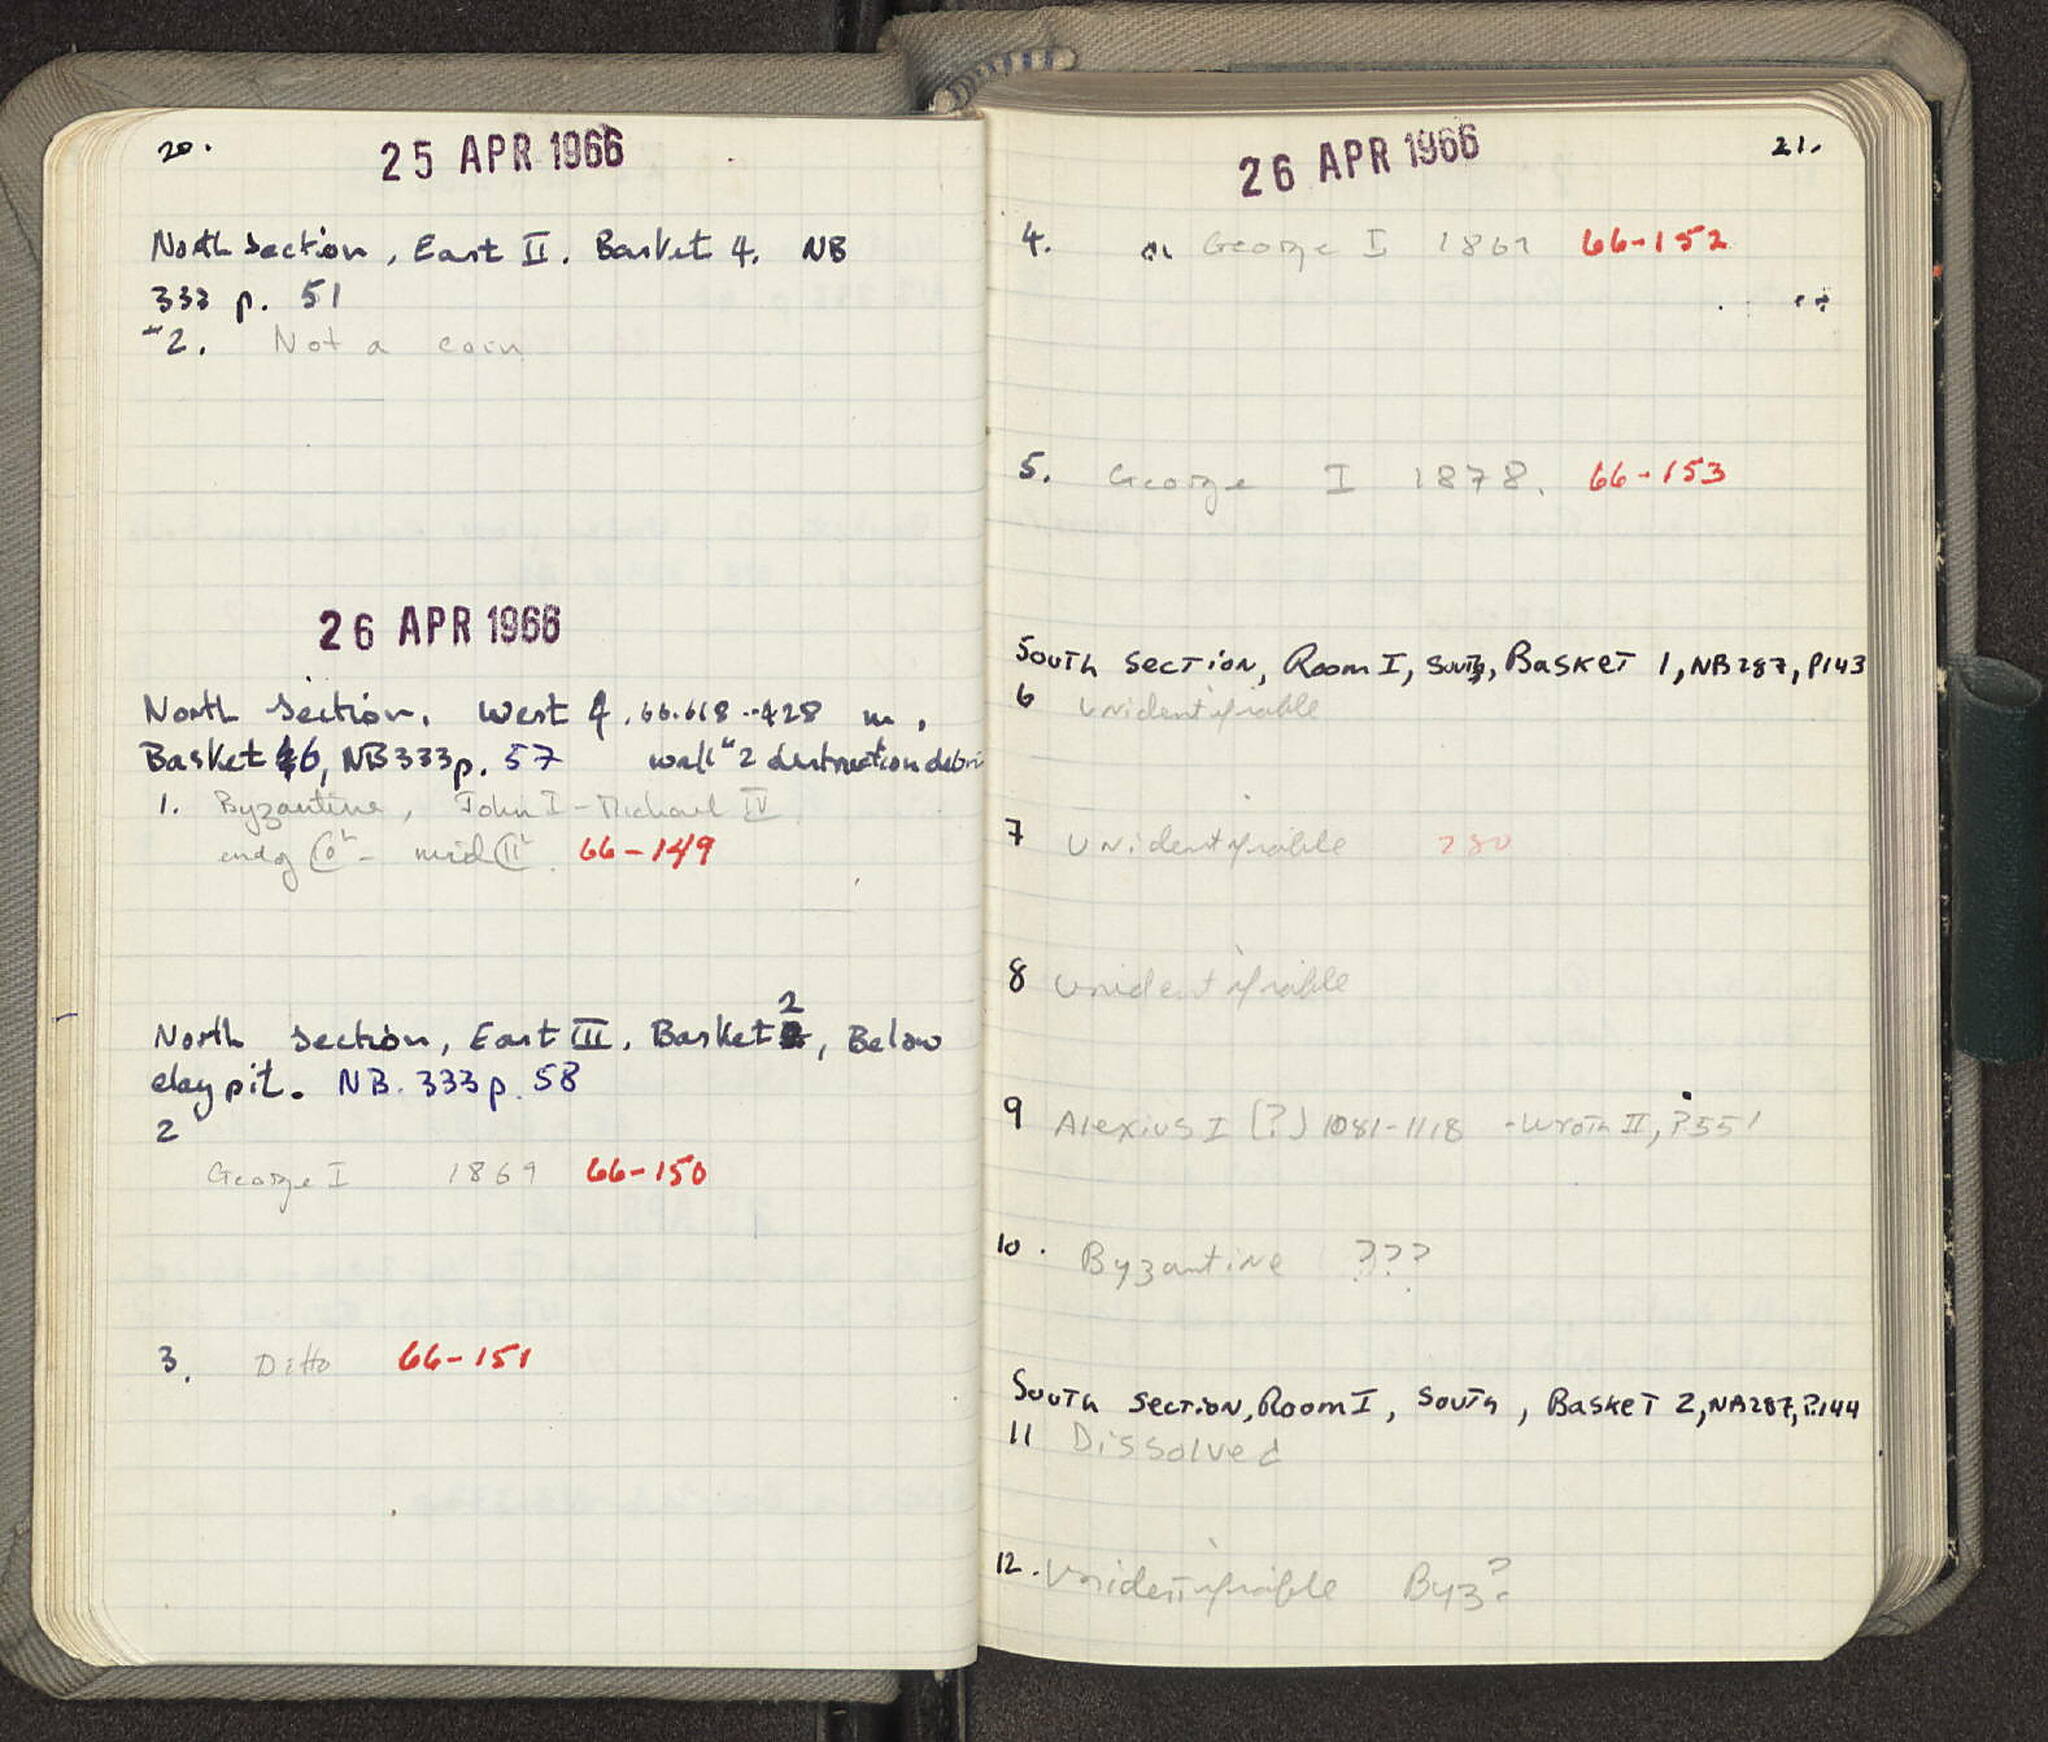 20.
25 APR 1966
North Section, East II. Basket 4. NB
333 p. 51
2. Not a coin
26 APR 1966
North Section. West 4, 66.618-.428 m,
Basket 6, NB333p. 57 wall 2 destruction debri
1. Byzantine, John I - Michael IV
end of C10 - mid C11. 66-149
North Section, East III. Basket 2, Below
clay pit. NB. 333p. 58
2
George I 1869 66-150
3. Ditto 66-151
26 APR 1966
21.
4. George I 66-152
5. George I 1878. 66-153
South Section, Room I, South, Basket 1, NB287, P143
6 Unidentifiable
7 Unidentifiable 280
8 Unidentifiable
9 Alexius I (?) 1081-1118 - Wroth II, P551
10. Byzantine ???
South Section, Room I, South, Basket 2, NA287, P.144
11 Dissolved
12. Unidentifiable Byz?